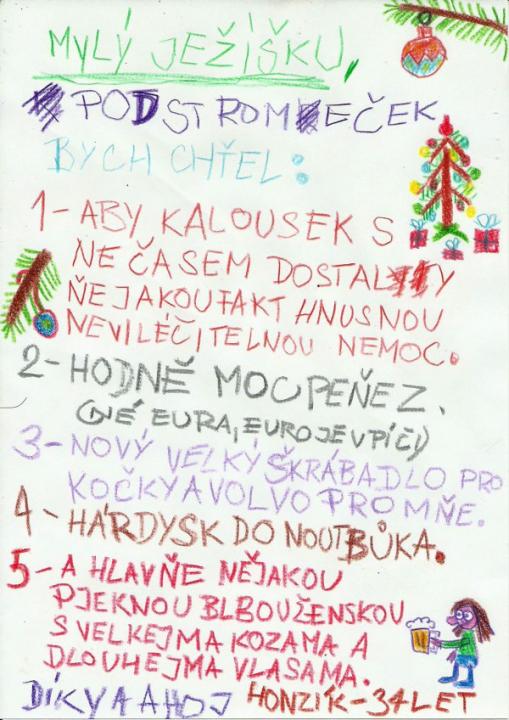 MYLÝ JEŽÍŠKU,
PODSTROMEČEK
BYCH CHŤEL:
1-ABY KALOUSEK S
NEČASEM DOSTALY
ŇEJAKOU FAKT HNUSNOU
NEVILÉČITELNOU NEMOC.
2-HODNĚ MOCPEŇEZ.
(NÉ EURA, EURO JE V PÍČI)
3-NOVÝ VELKÝ ŠKRÁBADLO PRO
KOČKY A VOLVO PRO MŇE.
4-HÁRDYSK DO NOUTBŮKA.
5-A HLAVŇE NĚJAKOU
PJEKNOU BLBOU ŽENSKOU
S VELKEJMA KOZAMA A
DLOUHEJMA VLASAMA.
DÍKY A AHOJ HONZÍK-34 LET